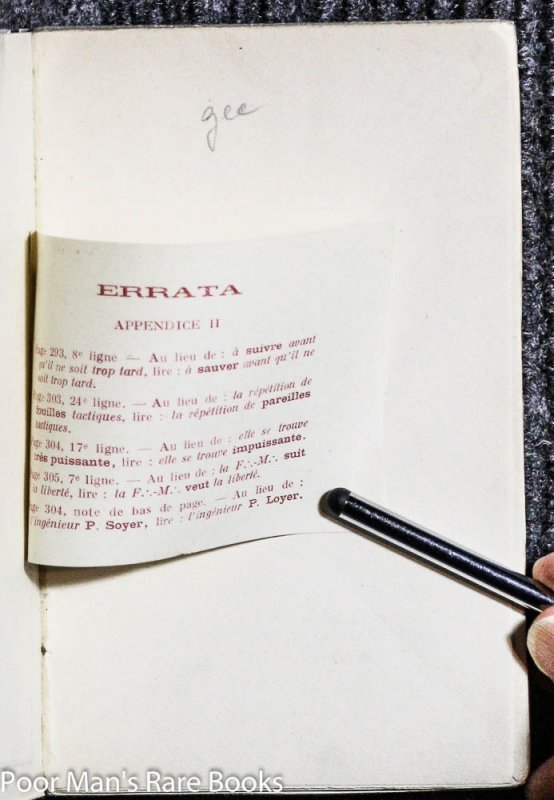 gee
ERRATA
APPENDICE II
Page 293, 8e ligne — Au lieu de : à suivre avant
qu'il ne soit trop tard, lire : à sauver avant qu'il ne
soit trop tard.
Page 303, 24e ligne. — Au lieu de : la répétition de
fouilles tactiques, lire : la répétition de pareilles
tactiques.
Page 304, 17e ligne. — Au lieu de : elle se trouve
très puissante, lire : elle se trouve impuissante.
Page 305, 7e ligne. — Au lieu de : la F∴-M∴ suit
la liberté, lire : la F∴-M∴ veut la liberté.
Page 304, note de bas de page. — Au lieu de :
l'ingénieur P. Soyer, lire : l'ingénieur P. Loyer.
Poor Man's Rare Books